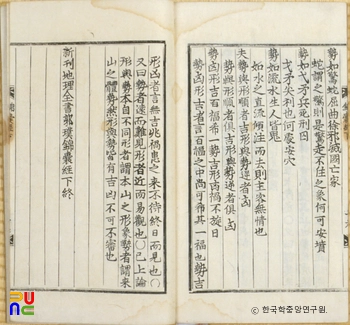 勢如驚蛇屈曲徐邪滅國亡家
蛇謂之驚則是驚走不住之象何可安墳
勢如戈矛兵死刑囚
戈矛尖利也何處安穴
勢如流水生人皆鬼
如水之直流傾注而去則主客無情也
夫勢與形順者吉勢與形逆者凶
勢與形順者俱吉形與勢逆者俱凶
勢凶形吉百福希一勢吉形凶禍不旋日
勢凶形吉者言百福之中尚可希其一福也勢吉
形凶者言無吉兆禍患之來不待終日而見也○已上論
又曰勢者遠而難見形者近而易觀也
形與勢本自不同形者謂本山之形象勢者謂來
山之體勢然形與勢皆有吉凶不可不審也
新刊地理全書郭璞錦囊經下終
한국학중앙연구원